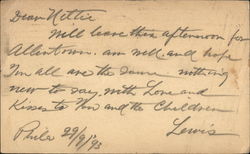 Dear Nettie
Will leave this afternoon for
Allentown. am well. and hope
You all are the same nothing
new to say, with Love and
Kisses to You and the Children
Lewis
Phila 29/9/93